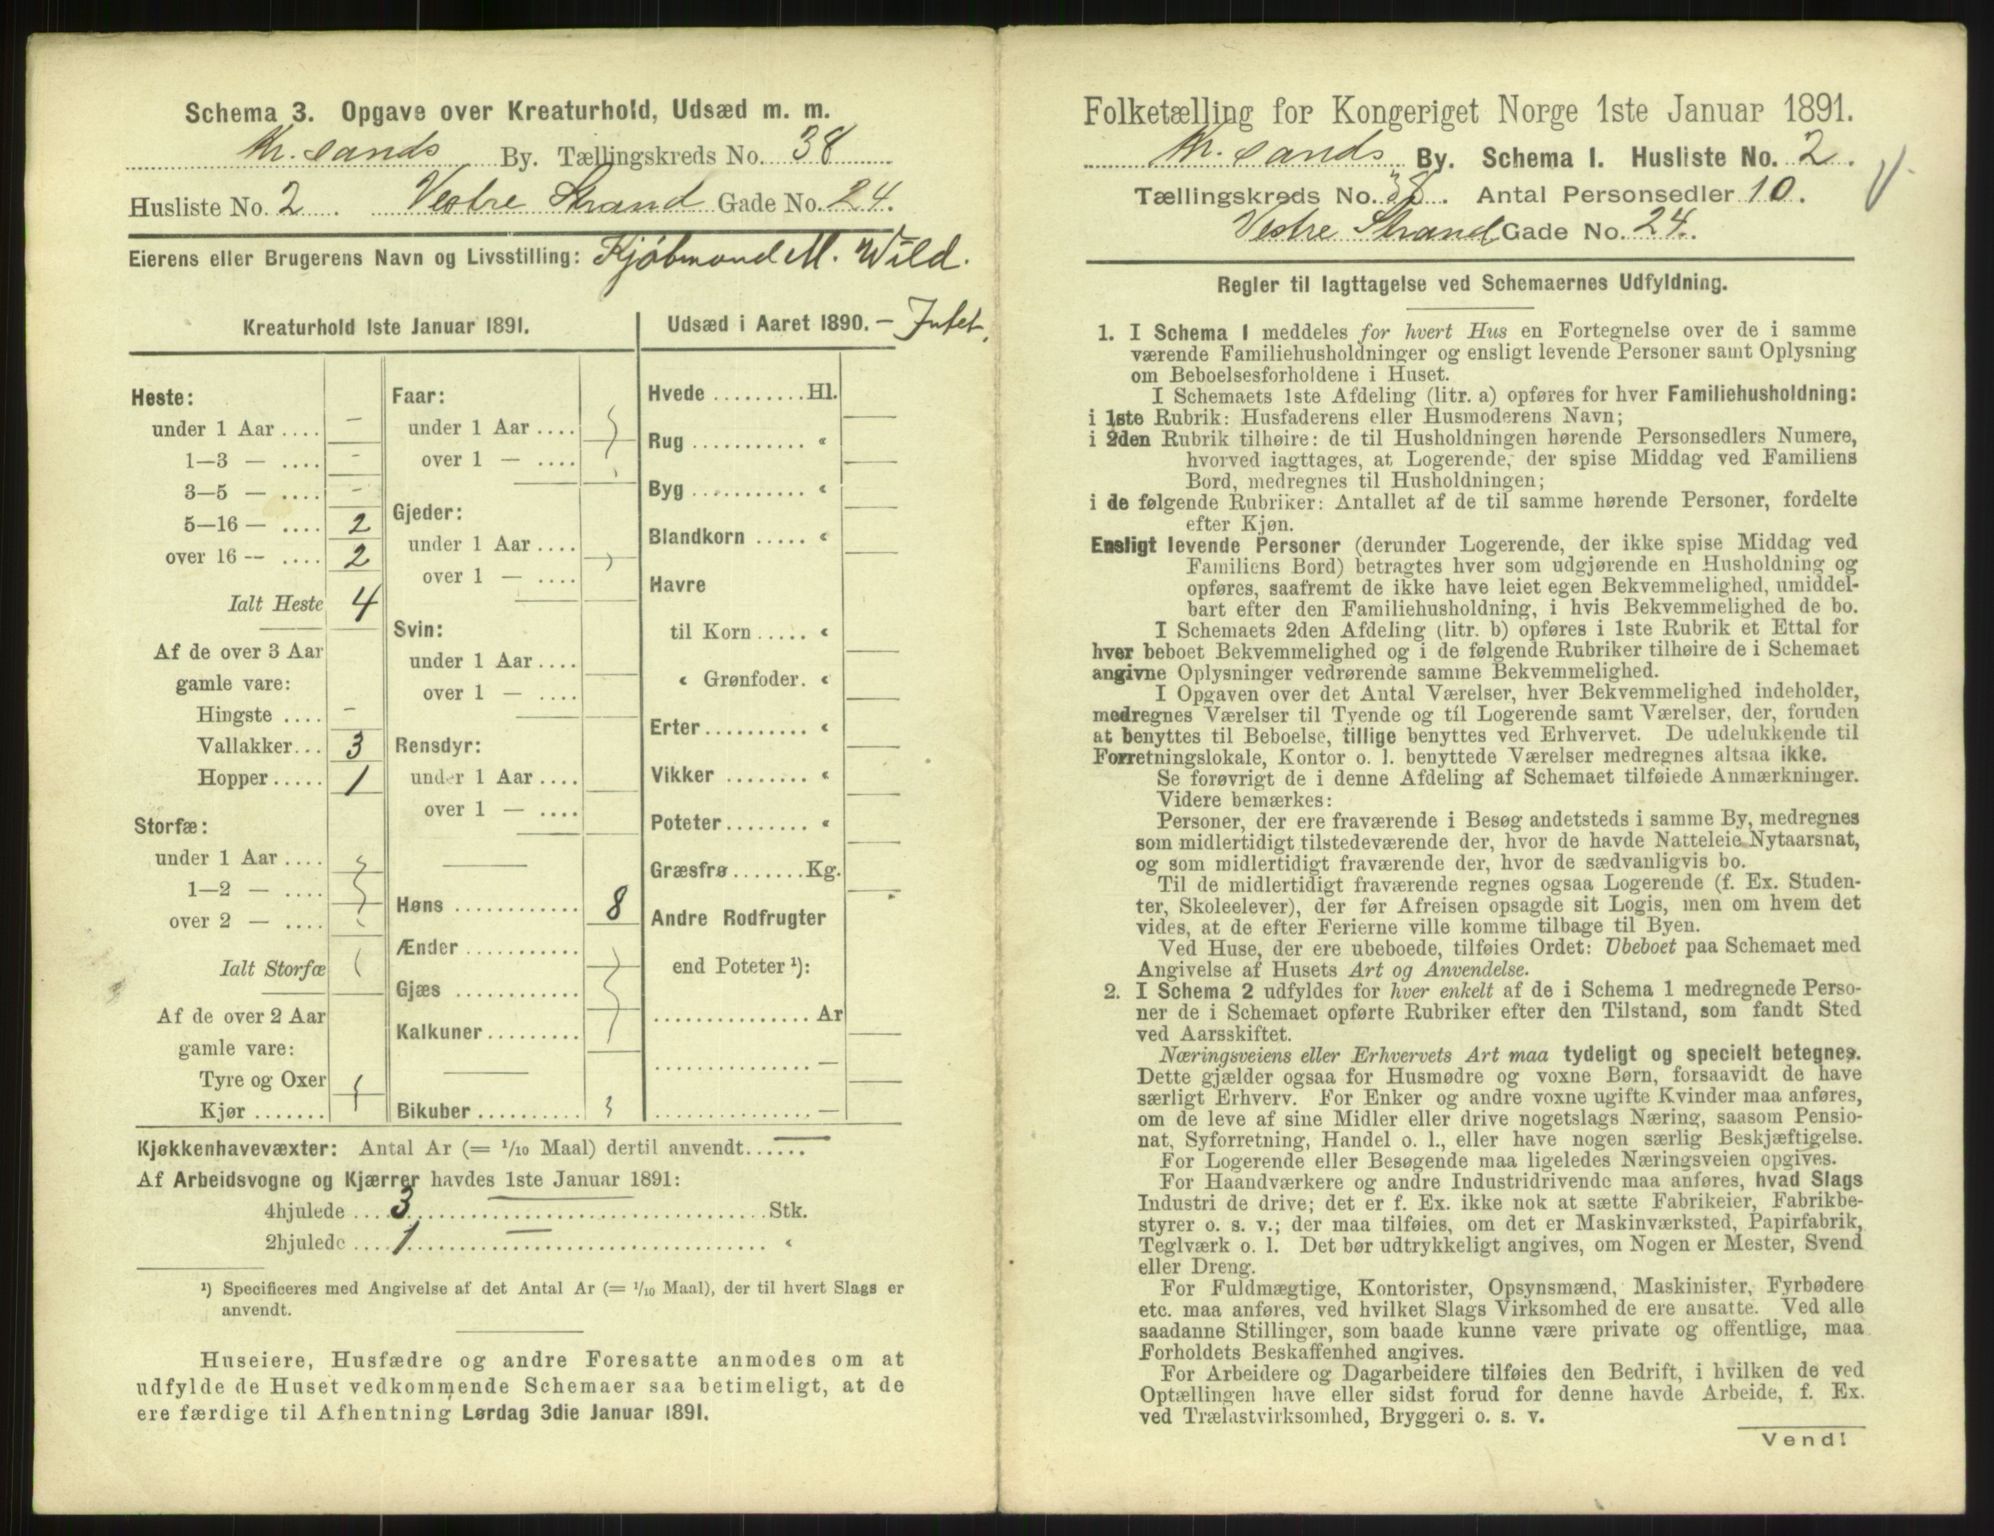 Schema 3. Opgave over Kreaturhold, Udsæd m. m.
Kr.sands By. Tællingskreds No. 38
Husliste No. 2. Vestre Strand Gade No. 24.
Eierens eller Brugerens Navn og Livsstilling: Kjøbmand M. Wild.
Kreaturhold 1ste Januar 1891.
Heste:
under 1 Aar .... –
1—3 — .... -
3—5 — .... -
5—16 — .... 2
over 16 — .... 2
Ialt Heste 4
Af de over 3 Aar
gamle vare:
Hingste .... -
Vallakker... 3
Hopper..... 1
Storfæ:
under 1 Aar ....
1—2 — ....
over 2 — ....
Ialt Storfæ
Af de over 2 Aar
gamle vare:
Tyre og Oxer
Kjør .......
Faar:
under 1 Aar ....
over 1 — ....
Gjeder:
under 1 Aar ....
over 1 — ....
Svin:
under 1 Aar ....
over 1 — ....
Rensdyr:
under 1 Aar ....
over 1 — ....
Høns ............ 8
Ænder ...........
Gjæs ............
Kalkuner .........
Bikuber ..........
Udsæd i Aaret 1890. – Intet.
Hvede .........Hl.
Rug ........... «
Byg ........... «
Blandkorn ..... «
Havre
til Korn ..... «
« Grønfoder. «
Erter.......... «
Vikker ........ «
Poteter........ «
Græsfrø .......Kg.
Andre Rodfrugter
end Poteter ¹):
............... Ar
............... —
............... —
Kjøkkenhavevæxter: Antal Ar (= 1/10 Maal) dertil anvendt......
Af Arbeidsvogne og Kjærrer havdes 1ste Januar 1891:
4hjulede .... 3 ........ Stk.
2hjulede .... 1 ........ «
¹) Specificeres med Angivelse af det Antal Ar (= 1/10 Maal), der til hvert Slags er
anvendt.
Huseiere, Husfædre og andre Foresatte anmodes om at
udfylde de Huset vedkommende Schemaer saa betimeligt, at de
ere færdige til Afhentning Lørdag 3die Januar 1891.
Folketælling for Kongeriget Norge 1ste Januar 1891.
Kr.sands By. Schema 1. Husliste No. 2.
Tællingskreds No. 38. Antal Personsedler 10.
Vestre Strand Gade No. 24.
Regler til Iagttagelse ved Schemaernes Udfyldning.
1. I Schema 1 meddeles for hvert Hus en Fortegnelse over de i samme
værende Familiehusholdninger og ensligt levende Personer samt Oplysning
om Beboelsesforholdene i Huset.
I Schemaets 1ste Afdeling (litr. a) opføres for hver Familiehusholdning:
i 1ste Rubrik: Husfaderens eller Husmoderens Navn;
i 2den Rubrik tilhøire: de til Husholdningen hørende Personsedlers Numere,
hvorved iagttages, at Logerende, der spise Middag ved Familiens
Bord, medregnes til Husholdningen;
i de følgende Rubriker: Antallet af de til samme hørende Personer, fordelte
efter Kjøn.
Ensligt levende Personer (derunder Logerende, der ikke spise Middag ved
Familiens Bord) betragtes hver som udgjørende en Husholdning og
opføres, saafremt de ikke have leiet egen Bekvemmelighed, umiddel-
bart efter den Familiehusholdning, i hvis Bekvemmelighed de bo.
I Schemaets 2den Afdeling (litr. b) opføres i 1ste Rubrik et Ettal for
hver beboet Bekvemmelighed og i de følgende Rubriker tilhøire de i Schemaet
angivne Oplysninger vedrørende samme Bekvemmelighed.
I Opgaven over det Antal Værelser, hver Bekvemmelighed indeholder,
medregnes Værelser til Tyende og til Logerende samt Værelser, der, foruden
at benyttes til Beboelse, tillige benyttes ved Erhvervet. De udelukkende til
Forretningslokale, Kontor o. l. benyttede Værelser medregnes altsaa ikke.
Se forøvrigt de i denne Afdeling af Schemaet tilføiede Anmærkninger.
Videre bemærkes:
Personer, der ere fraværende i Besøg andetsteds i samme By, medregnes
som midlertidigt tilstedeværende der, hvor de havde Natteleie Nytaarsnat,
og som midlertidigt fraværende der, hvor de sædvanligvis bo.
Til de midlertidigt fraværende regnes ogsaa Logerende (f. Ex. Studen-
ter, Skoleelever), der før Afreisen opsagde sit Logis, men om hvem det
vides, at de efter Ferierne ville komme tilbage til Byen.
Ved Huse, der ere ubeboede, tilføies Ordet: Ubeboet paa Schemaet med
Angivelse af Husets Art og Anvendelse.
2. I Schema 2 udfyldes for hver enkelt af de i Schema 1 medregnede Perso-
ner de i Schemaet opførte Rubriker efter den Tilstand, som fandt Sted
ved Aarsskiftet.
Næringsveiens eller Erhvervets Art maa tydeligt og specielt betegnes.
Dette gjælder ogsaa for Husmødre og voxne Børn, forsaavidt de have
særligt Erhverv. For Enker og andre voxne ugifte Kvinder maa anføres,
om de leve af sine Midler eller drive nogetslags Næring, saasom Pensio-
nat, Syforretning, Handel o. l., eller have nogen særlig Beskjæftigelse.
For Logerende eller Besøgende maa ligeledes Næringsveien opgives.
For Haandværkere og andre Industridrivende maa anføres, hvad Slags
Industri de drive; det er f. Ex. ikke nok at sætte Fabrikeier, Fabrikbe-
styrer o. s. v.; der maa tilføies, om det er Maskinværksted, Papirfabrik,
Teglværk o. l. Det bør udtrykkeligt angives, om Nogen er Mester, Svend
eller Dreng.
For Fuldmægtige, Kontorister, Opsynsmænd, Maskinister, Fyrbødere
etc. maa anføres, ved hvilket Slags Virksomhed de ere ansatte. Ved alle
saadanne Stillinger, som baade kunne være private og offentlige, maa
Forholdets Beskaffenhed angives.
For Arbeidere og Dagarbeidere tilføies den Bedrift, i hvilken de ved
Optællingen have eller sidst forud for denne havde Arbeide, f. Ex.
ved Trælastvirksomhed, Bryggeri o. s. v.
Vend!